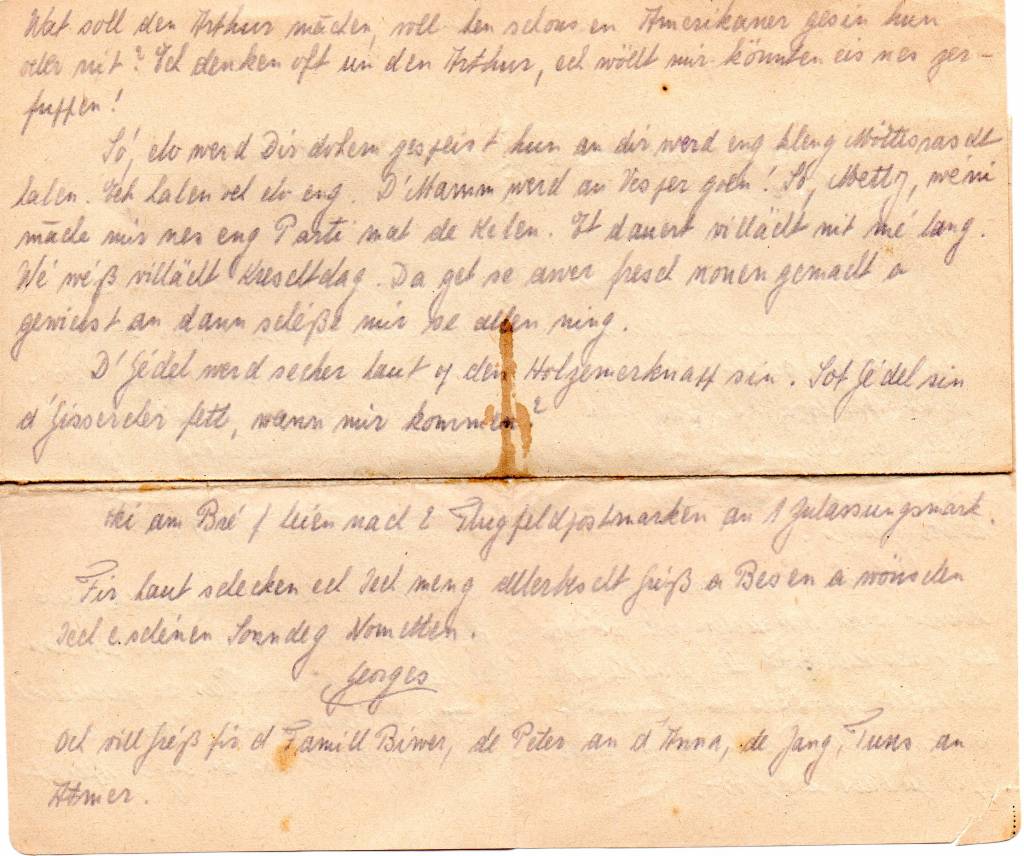 Wat soll den Arthur mâchen, soll hen schons en Amerikaner gesin hun
oder nit? Ech denken oft un den Arthur, ech wöllt mir könnten eis nes zer-
fuppen!
Só, elo werd Dir dohem gespeist hun an dir werd eng kleng Möttesrascht
halen. Ech halen och elo eng. D'Mamm werd an Vesper goen! Só, Metty, wéini
mâche mir nes eng Parti mat de Kelen. Et dauert villächt nit mé lang.
Wé wéß villächt Kreschtdag. Da get se awer fresch nouen gemacht a
gewiest an dann schéße mir se allen ning.
D'Gédel werd secher haut op den Holzemerknapp sin. Sot Gédel sin
d'Gissercher fett, wann mir kommen?
Hei am Bréf leien nach 2 Flugfeldpostmarken an 1 Zulassungsmark.
Fir haut schecken ech Iech meng allerbescht Gréß a Besen a wönschen
Iech e schéinen Sonndeg Nometten.
Georges
Och vill Gréß fir d'Famill Biwer, de Peter an d'Anna, de Jang, Tuns an